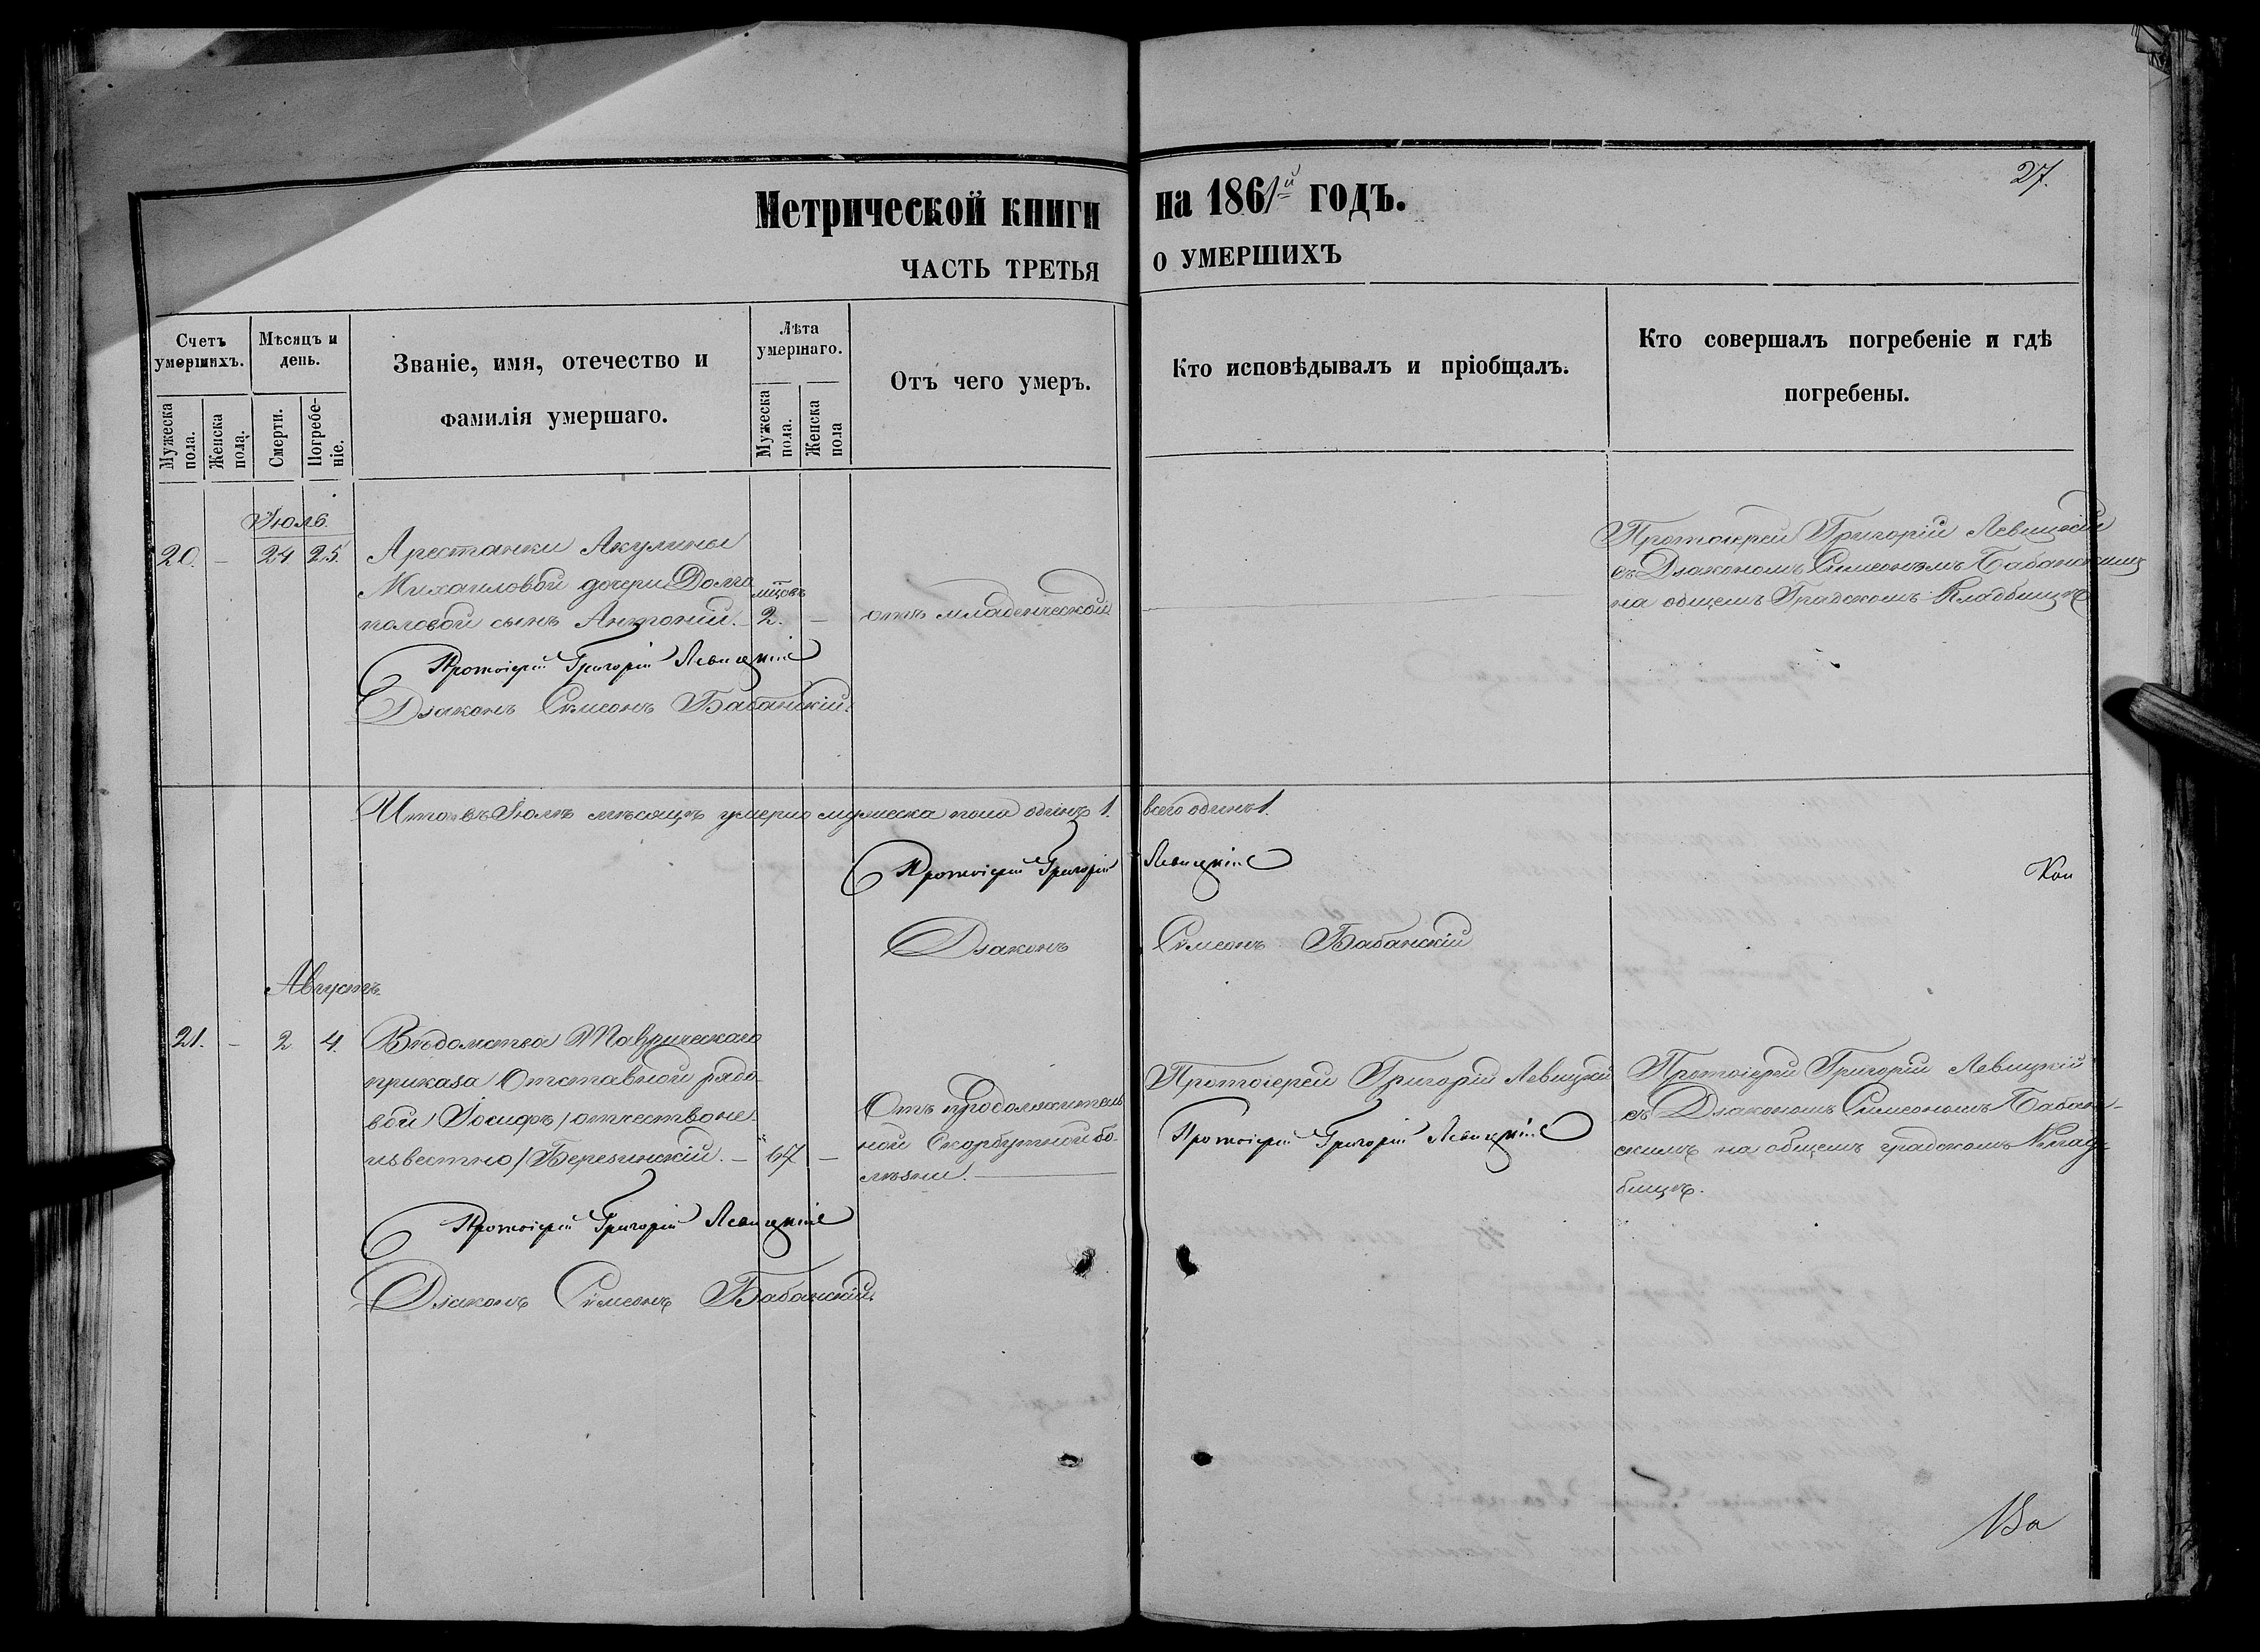 27.
Метрической книги на 1861й годъ.
ЧАСТЬ ТРЕТЬЯ о УМЕРШИХЪ
Счетъ умершихъ.
Мужеска пола.
Женска пола.
Мѣсяцъ и день.
Смерти.
Погребеніе.
Званіе, имя, отечество и
фамилія умершаго.
Лѣта умершаго.
Мужеска пола.
Женска пола
Отъ чего умеръ.
Кто исповѣдывалъ и пріобщалъ.
Кто совершалъ погребеніе и гдѣ
погребены.
Іюль.
20. – 24 25.
Арестанки Акулины
Михаиловой дочери Долго
половой сынъ Антоній. –
мцовъ
2. –
отъ младенческой
Протоіерей Григорій Левицкій
съ Діакономъ Симеономъ Бабанскимъ
на общемъ Градскомъ Кладбищѣ
Протоіерей Григорій Левицкій
Діаконъ Симеонъ Бабанскій.
Итого въ Іюлѣ мѣсяцѣ умерло мужеска пола одинъ 1. всего одинъ 1.
Протоіерей Григорій Левицкій
Діаконъ Симеонъ Бабанскій
Августъ.
21. – 2 4.
Вѣдомства Таврическаго
приказа Отставной рядо-
вой Іосифъ /отчество не-
известно/ Березинскій. –
67 –
Отъ продолжитель
ной Скорбутной бо-
лѣзни.
Протоіерей Григорій Левицкій
Протоіерей Григорій Левицкій
Протоіерей Григорій Левицкій
съ Діакономъ Симеономъ Бабан-
скимъ на общемъ градскомъ Клад-
бищѣ.
Протоіерей Григорій Левицкій
Діаконъ Симеонъ Бабанскій.